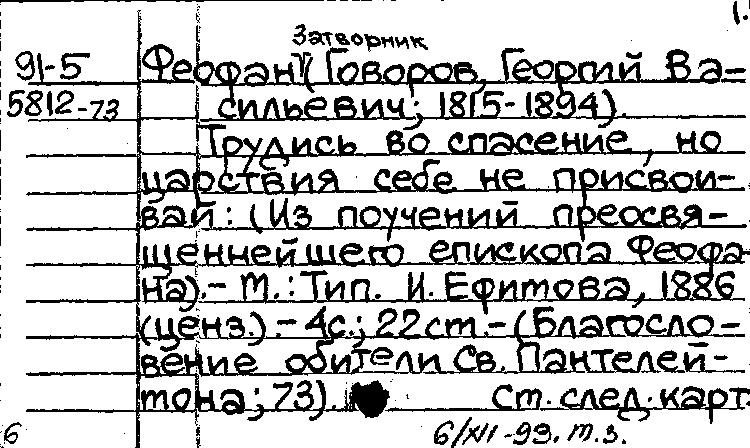 1.
Затворник
91-5 Феофан (Говоров, Георгий Ва=
5812-73 сильевич; 1815-1894).
Трудись во спасение, но
царствия себе не присвои-
вай: (Из поучений преосвя-
щеннейшего епископа Феофа-
на).- М.: Тип. И. Ефимова, 1886
(ценз.).- 4с.; 22см.- (Благосло-
вение обители св. Пантелей-
мона; 73). Ст. след. карт.
6 6/XII-93. т.з.